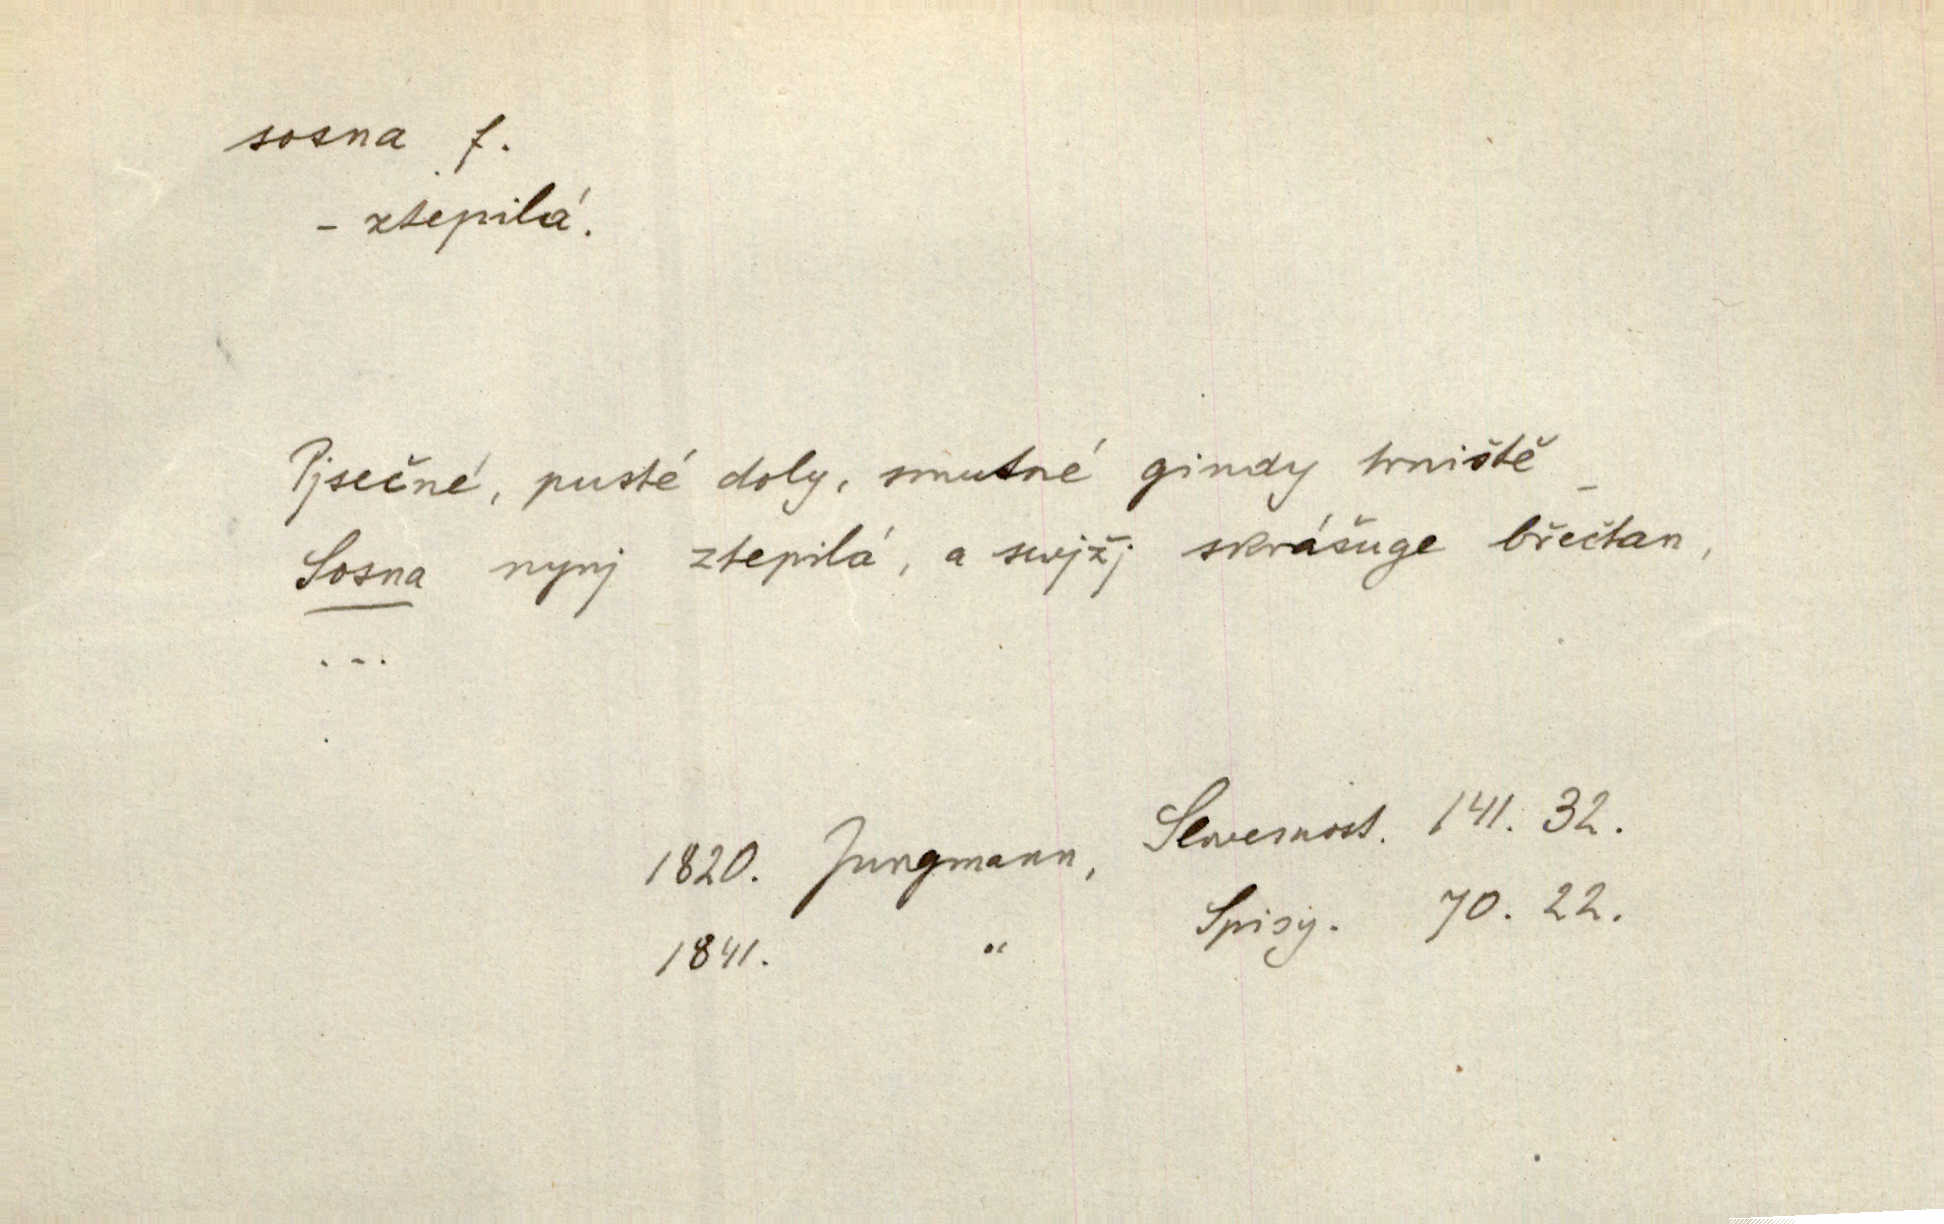 sosna f.
- ztepilá.
Pjsečné, pusté doly, smutné gindy trniště _
Sosna nynj ztepilá, a swjžj skrášuge břečtan,
...
1820. Jungmann, Slowesnost. 141. 32.
1841. " Spisy. 70. 22.